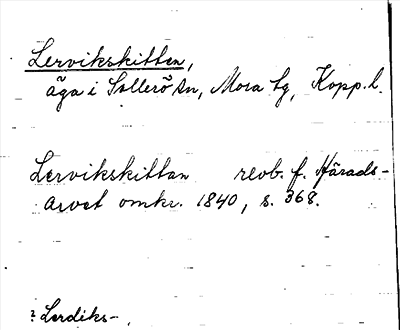 Lervikskittan,
äga i Sollerö sn, Mora tg, Kopp. l.
Lervikskittan revb. f. Härads-
arvet omkr. 1840, s. 368.
? Lerdiks-